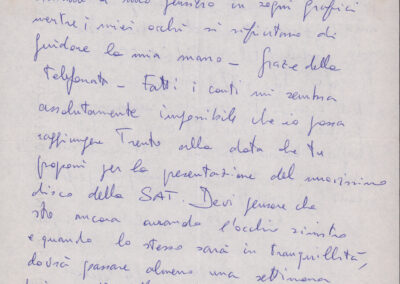 il mio pensiero in segni grafici
mentre i miei occhi si rifiutano di
guidare la mia mano — Grazie della
telefonata — Fatti i conti mi sembra
assolutamente impossibile che io possa
raggiungere Trento alla data che tu
proponi per la presentazione del nuovissimo
disco della SAT. Devi pensare che
sto ancora curando l'occhio sinistro
e quando lo stesso sarà in tranquillità,
dovrà passare almeno una settimana